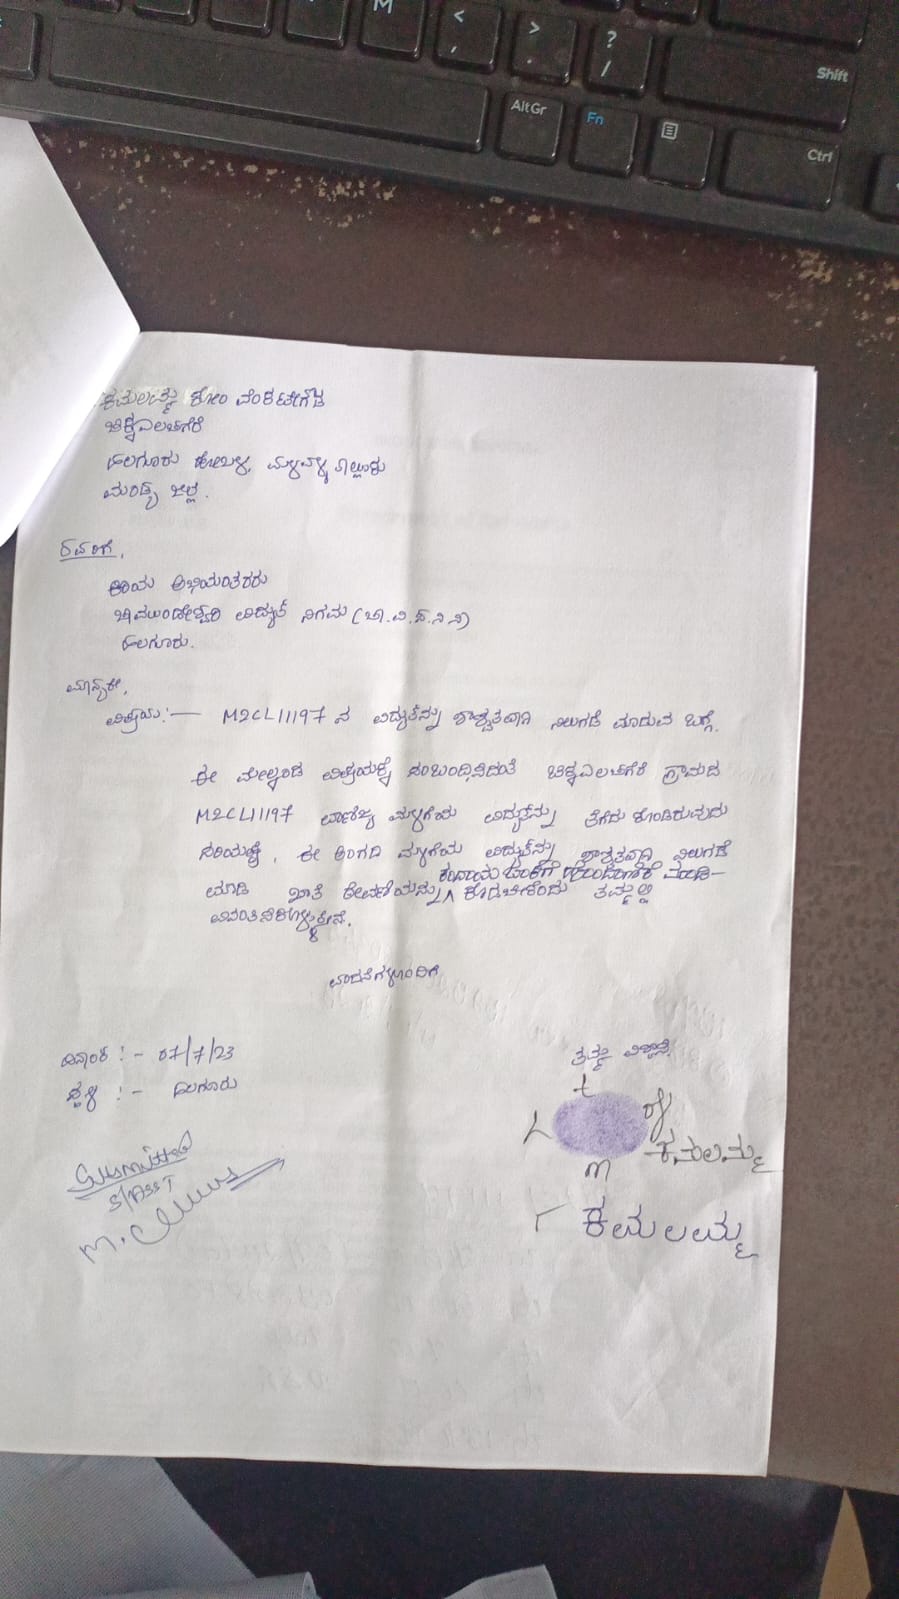 M
<
,
>
.
?
/
Shift
AltGr
Fn
Ctrl
ಕಮಲಮ್ಮ ಕೋಂ ವೆಂಕಟೇಗೌಡ
ಚಿಕ್ಕಎಲಚಗೆರೆ
ಹಲಗೂರು ಹೋಬಳಿ, ಮಳವಳ್ಳಿ ತಾಲ್ಲೂಕು
ಮಂಡ್ಯ ಜಿಲ್ಲೆ.
ರವರಿಗೆ,
ಕಿರಿಯ ಅಭಿಯಂತರರು
ಚಾಮುಂಡೇಶ್ವರಿ ವಿದ್ಯುತ್ ನಿಗಮ (ಚಾ.ವಿ.ಸ.ನಿ.ನಿ)
ಹಲಗೂರು.
ಮಾನ್ಯರೇ,
ವಿಷಯ:— M2CL11197 ನ ವಿದ್ಯುತ್‌ನ್ನು ಶಾಶ್ವತವಾಗಿ ನಿಲುಗಡೆ ಮಾಡುವ ಬಗ್ಗೆ.
ಈ ಮೇಲ್ಕಂಡ ವಿಷಯಕ್ಕೆ ಸಂಬಂಧಿಸಿದಂತೆ ಚಿಕ್ಕಎಲಚಗೆರೆ ಗ್ರಾಮದ
M2CL11197 ವಾಣಿಜ್ಯ ಮಳಿಗೆಯ ವಿದ್ಯುತ್‌ನ್ನು ತೆಗೆದು ಕೊಂಡಿರುವುದು
ಸರಿಯಷ್ಟೆ, ಈ ಅಂಗಡಿ ಮಳಿಗೆಯ ವಿದ್ಯುತ್‌ನ್ನು ಶಾಶ್ವತವಾಗಿ ನಿಲುಗಡೆ
ಮಾಡಿ ಖಾತೆ ಠೇವಣಿಯನ್ನು ಕೊಡಬೇಕೆಂದು ತಮ್ಮಲ್ಲಿ
ವಿನಂತಿಸಿಕೊಳ್ಳುತ್ತೇನೆ.
ವಂದನೆಗಳೊಂದಿಗೆ
ದಿನಾಂಕ :- 07/7/23
ಸ್ಥಳ :- ಹಲಗೂರು
ತಮ್ಮ ವಿಶ್ವಾಸಿ
ಕಮಲಮ್ಮ
ಕಮಲಮ್ಮ
Submitted